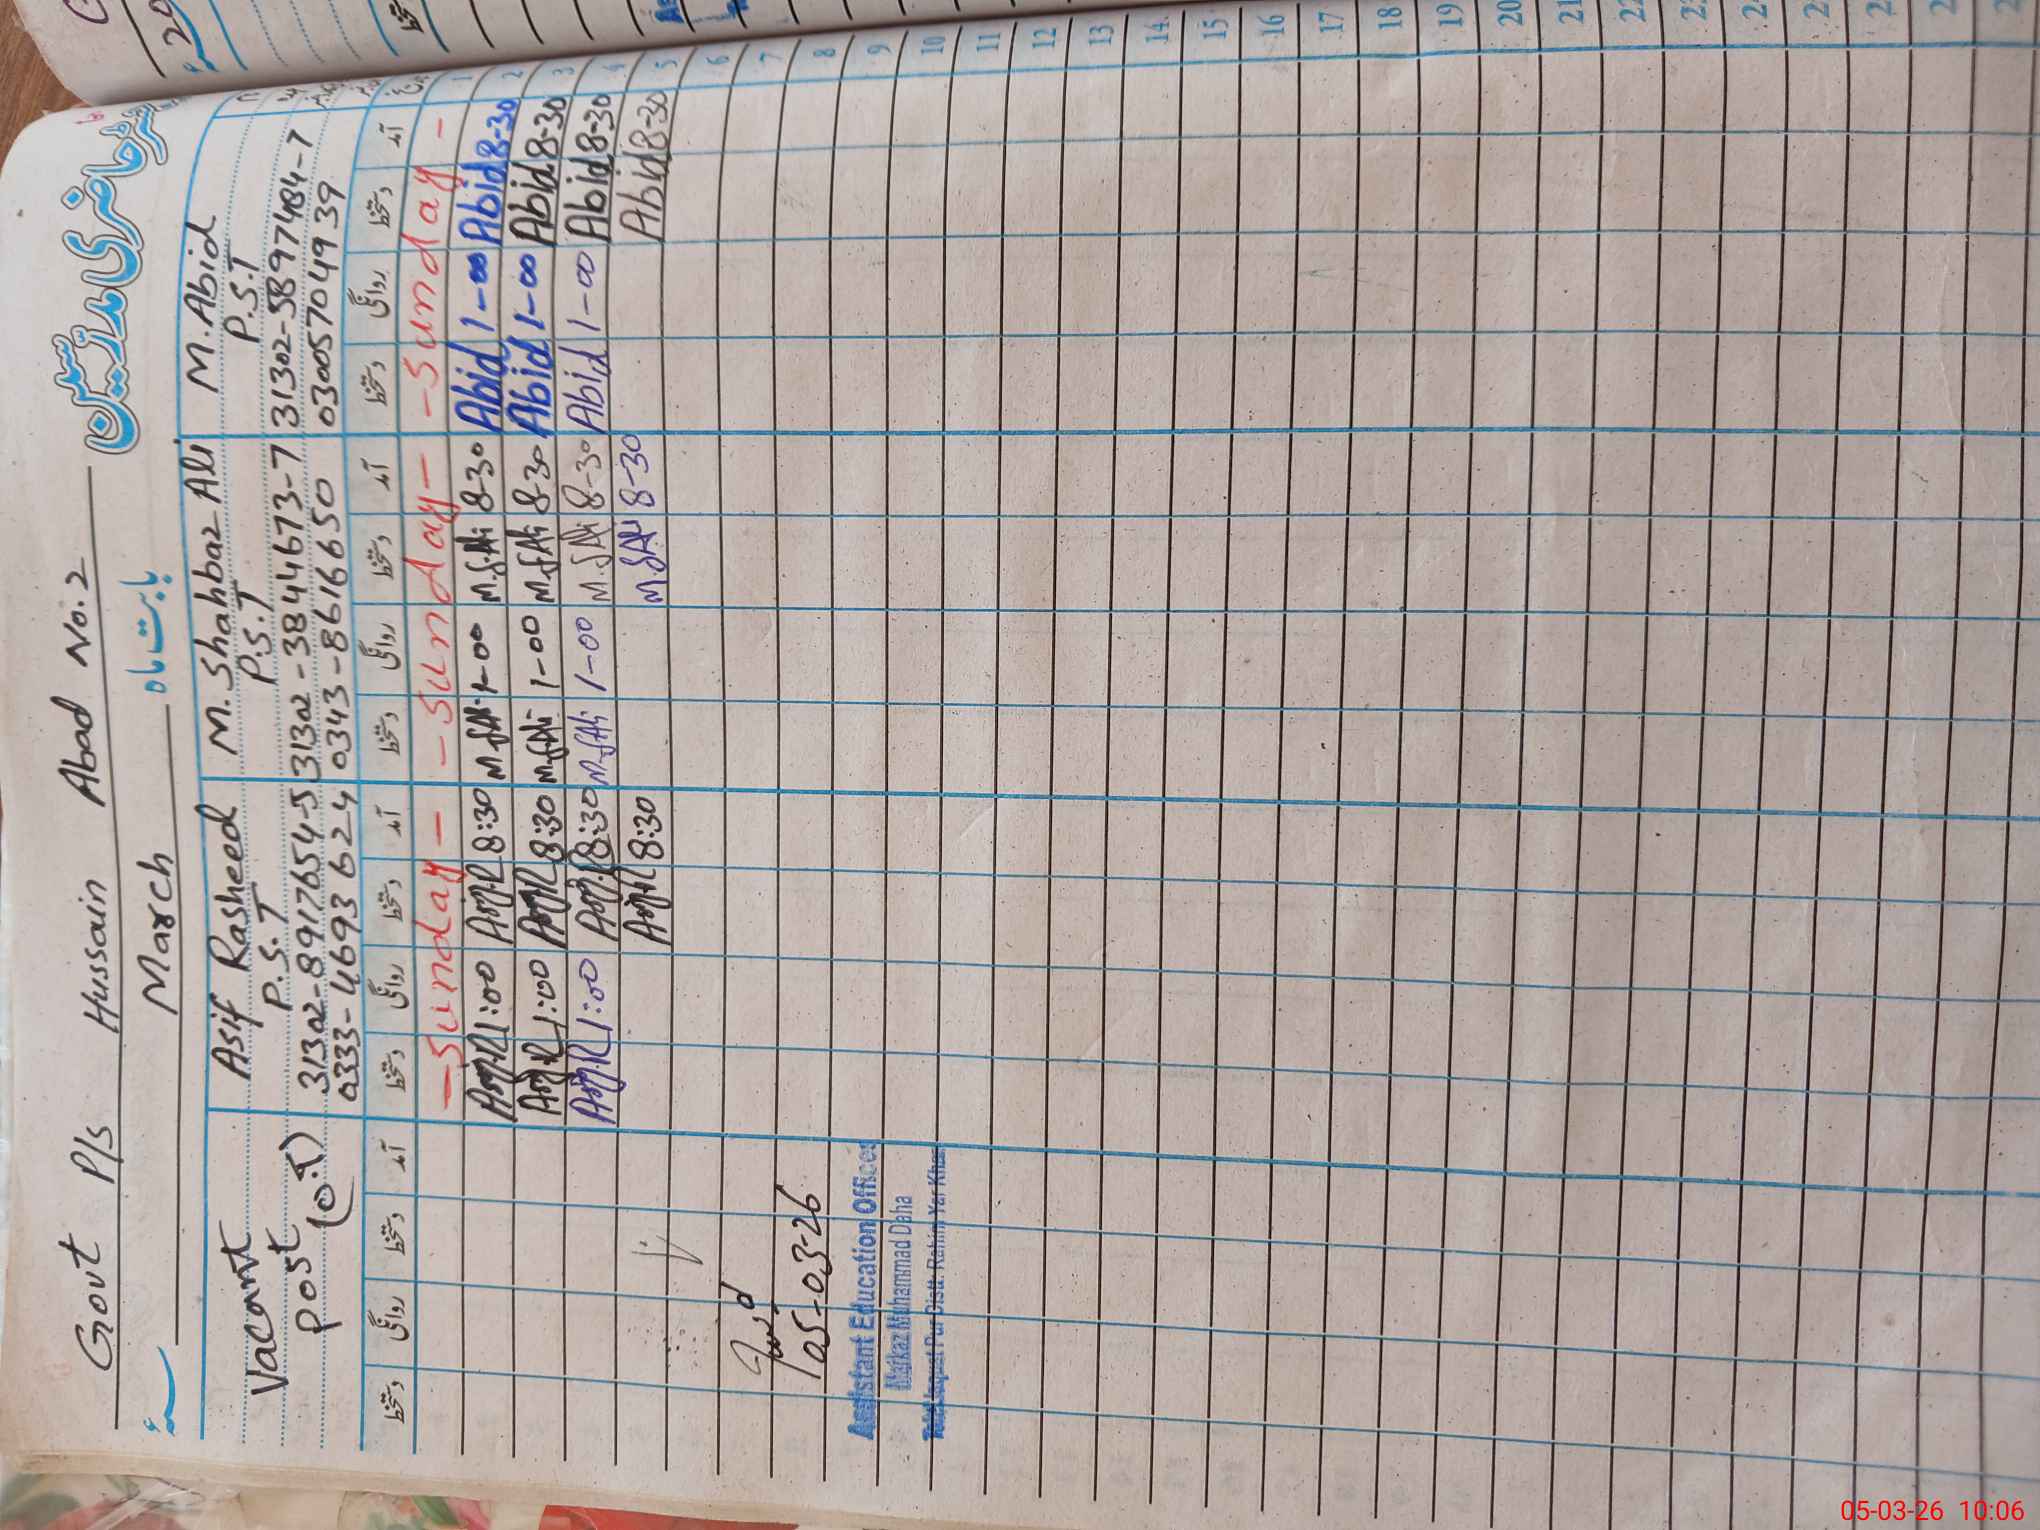 Govt P/s Hussain Abad No.2
رجسٹر حاضری مدرسین
March بابت ماہ
Vacant Asif Rasheed M. Shahbaz Ali M. Abid
Post P.S.T P.S.T P.S.T
31302-8917654-5 31302-3844673-7 31302-5897484-7
0333-4693624 0343-8616650 03005704939
دستخط روانگی دستخط آمد دستخط روانگی دستخط آمد دستخط روانگی دستخط آمد دستخط روانگی دستخط آمد
- Sunday - - Sunday - - Sunday - 1
1:00 8:30 M.SAli 1-00 M.SAli 8-30 Abid 1-00 Abid 8-30 2
1:00 8:30 M.SAli 1-00 M.SAli 8-30 Abid 1-00 Abid 8-30 3
1:00 8:30 M.SAli 1-00 M.SAli 8-30 Abid 1-00 Abid 8-30 4
8:30 M.SAli 8-30 Abid 8-30 5
6
7
05-03-26 8
Assistant Education Officer 9
Markaz Muhammad Daha
Pur Distt. Rahim Yar Khan 10
11
12
13
14
15
16
17
18
19
20
21
22
05-03-26 10:06